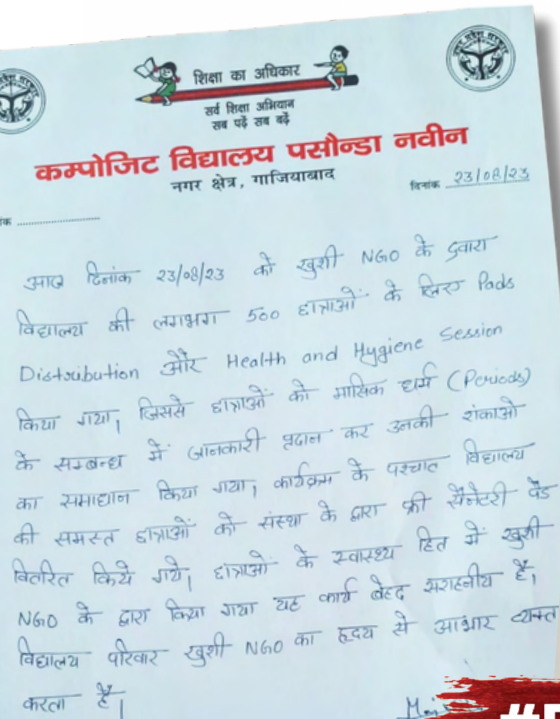 शिक्षा का अधिकार
सर्व शिक्षा अभियान
सब पढ़ें सब बढ़ें
कम्पोजिट विद्यालय पसौन्डा नवीन
नगर क्षेत्र, गाजियाबाद
दिनांक 23/08/23
आज दिनांक 23/08/23 को खुशी NGO के द्वारा
विद्यालय की लगभग 500 छात्राओं के लिए Pads
Distribution और Health and Hygiene Session
किया गया, जिससे छात्राओं को मासिक धर्म (Periods)
के सम्बन्ध में जानकारी प्रदान कर उनकी शंकाओ
का समाधान किया गया, कार्यक्रम के पश्चात विद्यालय
की समस्त छात्राओं को संस्था के द्वारा फ्री सैनेटरी पैड
वितरित किये गये, छात्राओं के स्वास्थ्य हित में खुशी
NGO के द्वारा किया गया यह कार्य बेहद सराहनीय है,
विद्यालय परिवार खुशी NGO का हृदय से आभार व्यक्त
करता है।